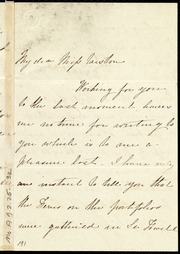 My dear Miss Weston
Working for you
to the last moment leaves
me no time for writing to
you which is to me a
pleasure lost. I have only
an instant to tell you that
the Ferns on the portfolios
were gathered in